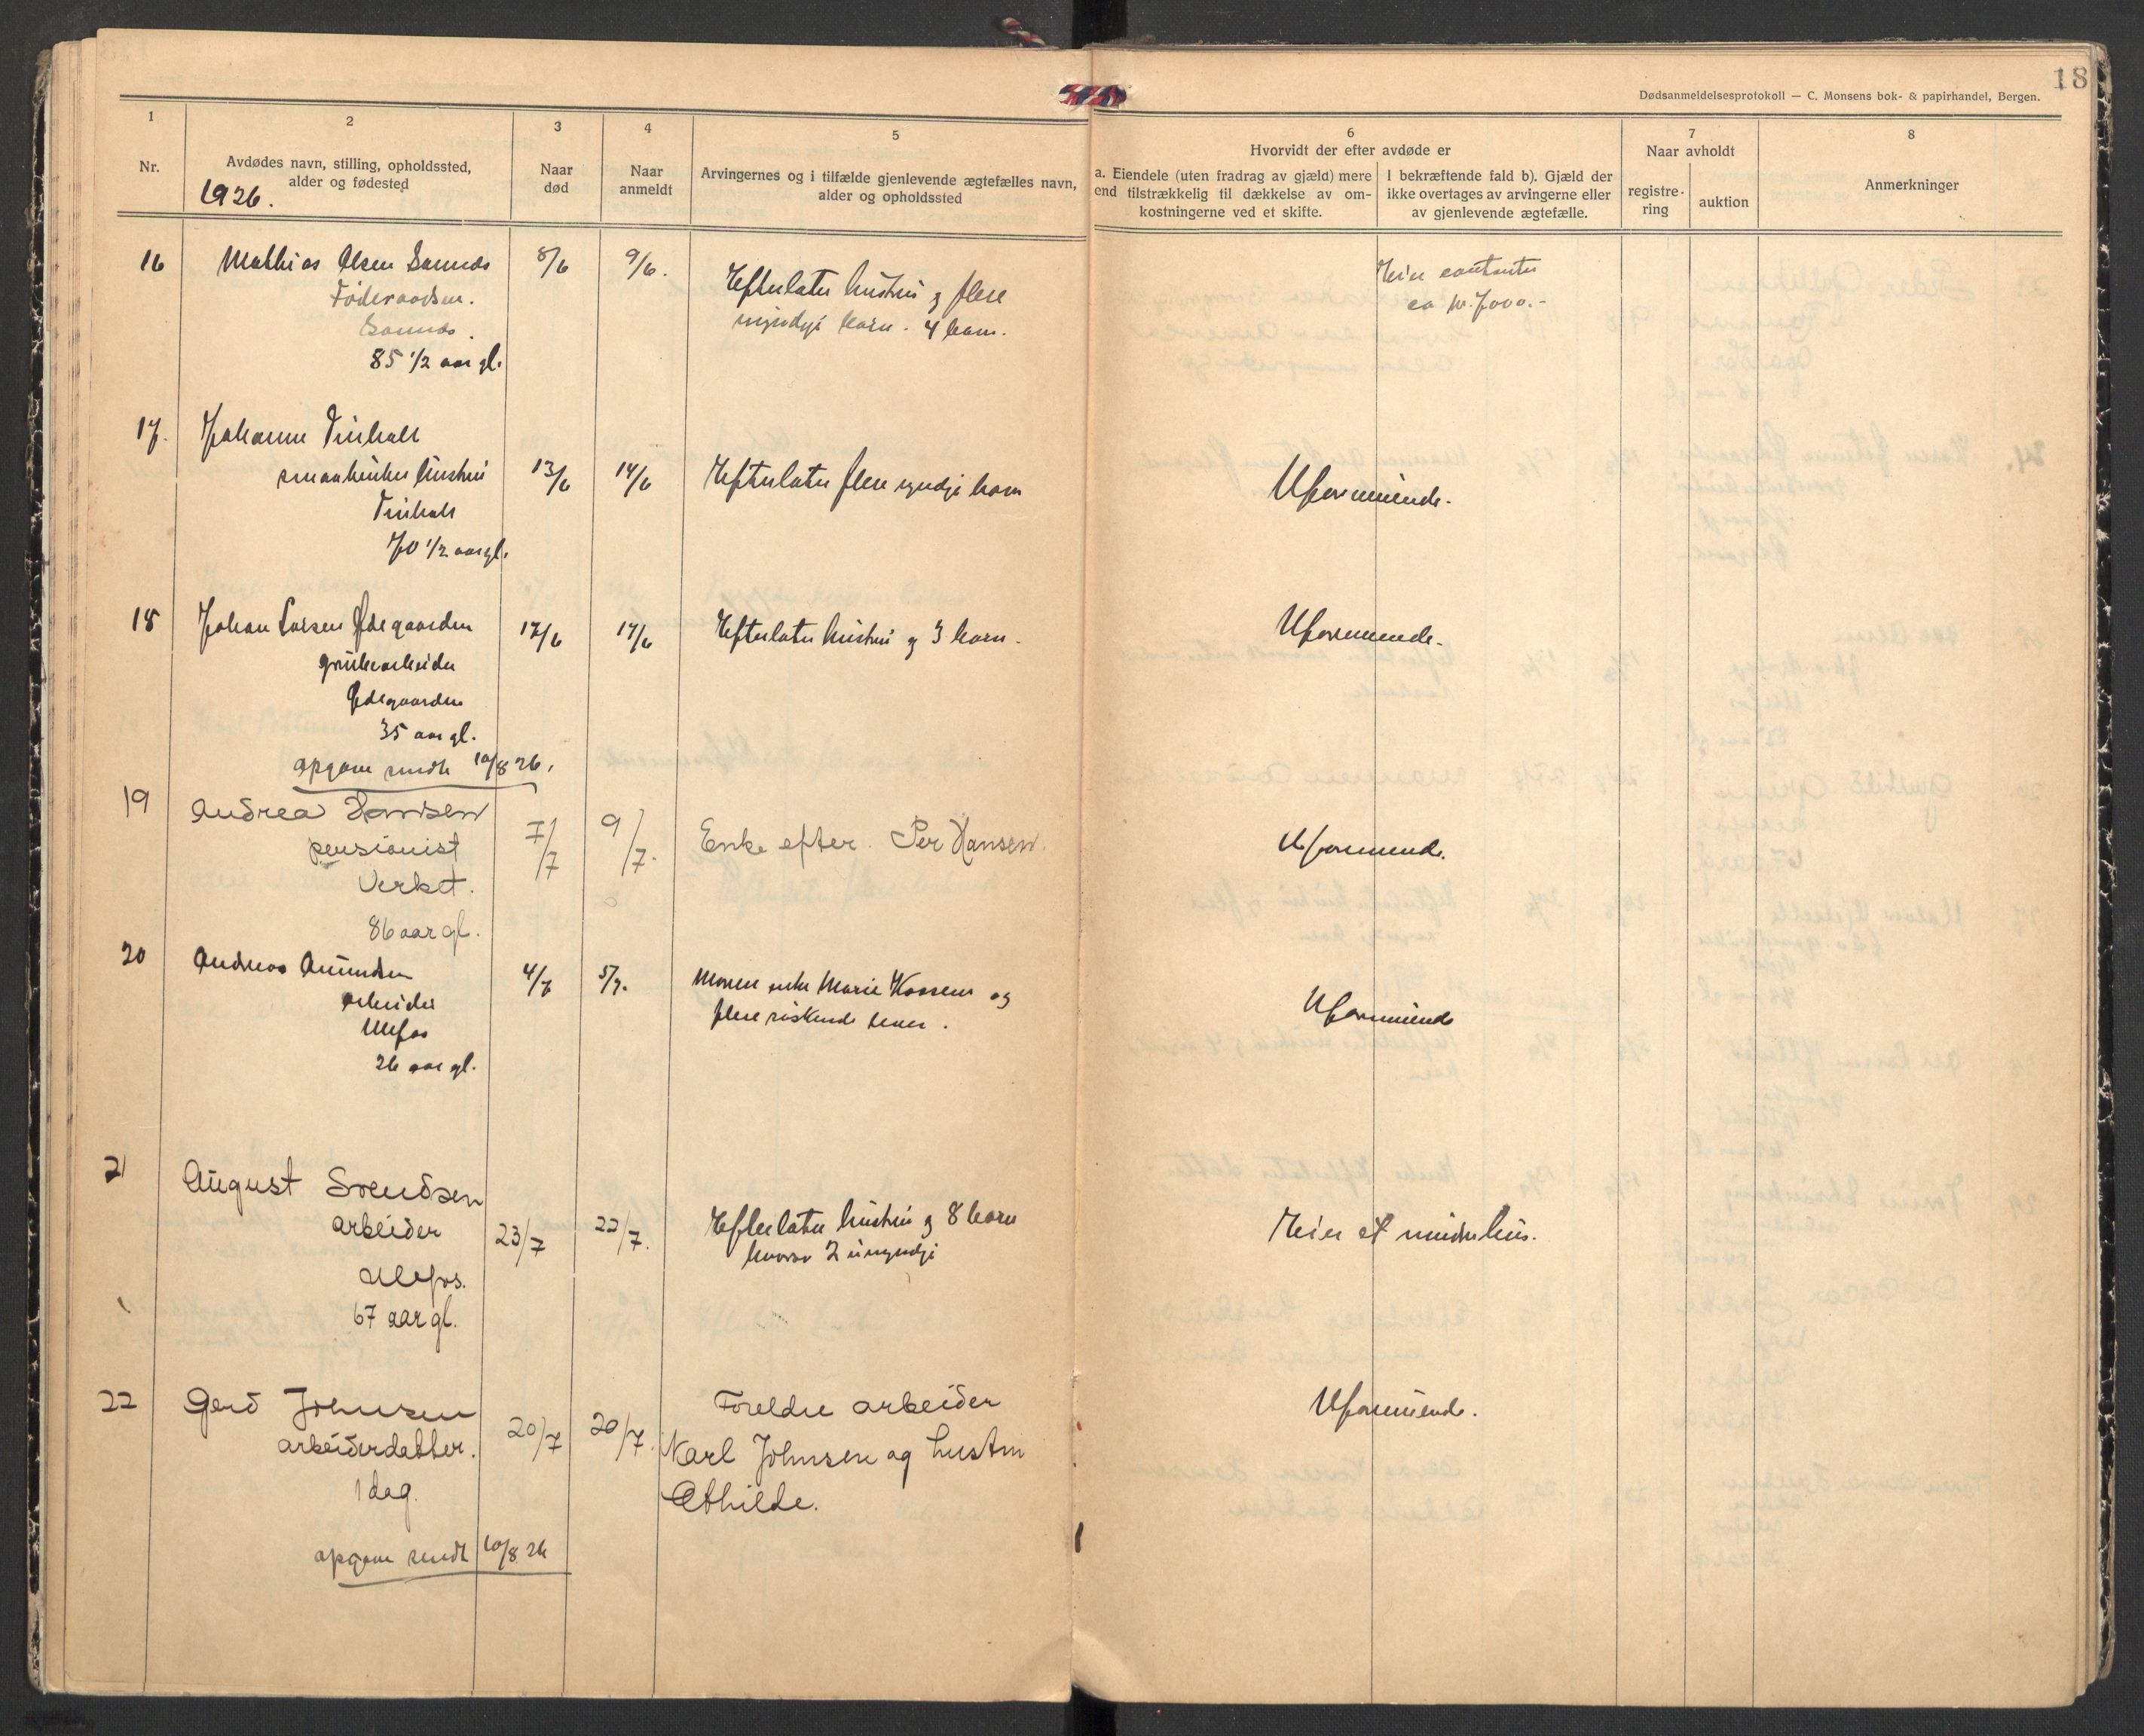 18
Dødsanmeldelsesprotokoll — C. Monsens bok- & papirhandel, Bergen.
1
Nr.
2
Avdødes navn, stilling, opholdssted,
alder og fødested
1926.
3
Naar
død
4
Naar
anmeldt
5
Arvingernes og i tilfælde gjenlevende ægtefælles navn,
alder og opholdssted
6
Hvorvidt der efter avdøde er
a. Eiendele (uten fradrag av gjæld) mere
end tilstrækkelig til dækkelse av om-
kostningerne ved et skifte.
I bekræftende fald b). Gjæld der
ikke overtages av arvingerne eller
av gjenlevende ægtefælle.
7
Naar avholdt
registre-
ring
auktion
8
Anmerkninger
16
Mathias Olsen
Föderaadsm.
85 1/2 aar gl.
8/6
9/6.
Efterlater hustru og flere
myndige barn. 4 barn.
Heier contanter
ca kr. 7000.-
17.
Johanne
hustru
70 1/2 aar gl.
13/6
14/6
Efterlater flere myndige barn
Uformuende.
18
Johan Larsen Ødegaarden
grubearbeider
Ødegaarden
35 aar gl.
opgave sendt 10/8 26.
17/6
17/6
Efterlater hustru og 3 barn.
Uformuende.
19
Andrea Hansen
pensionist
Verket.
86 aar gl.
7/7
9/7.
Enke efter. Per Hansen.
Uformuende.
20
Andreas Amundsen
arbeider
Ulefos
26 aar gl.
4/7
5/7.
Moren enke Marie Kaasene og
flere söskende lever.
Uformuende
21
August Svendsen
arbeider
Ulefos.
67 aar gl.
23/7
22/7.
Efterlater hustru og 8 barn
hvorav 2 umyndige
Heier et mindre hus.
22
Gerd Johnsen
arbeiderdatter.
1 dag.
20/7
20/7.
Foreldre arbeider
Karl Johnsen og hustru
Uformuende.
opgave sendt 10/8 26